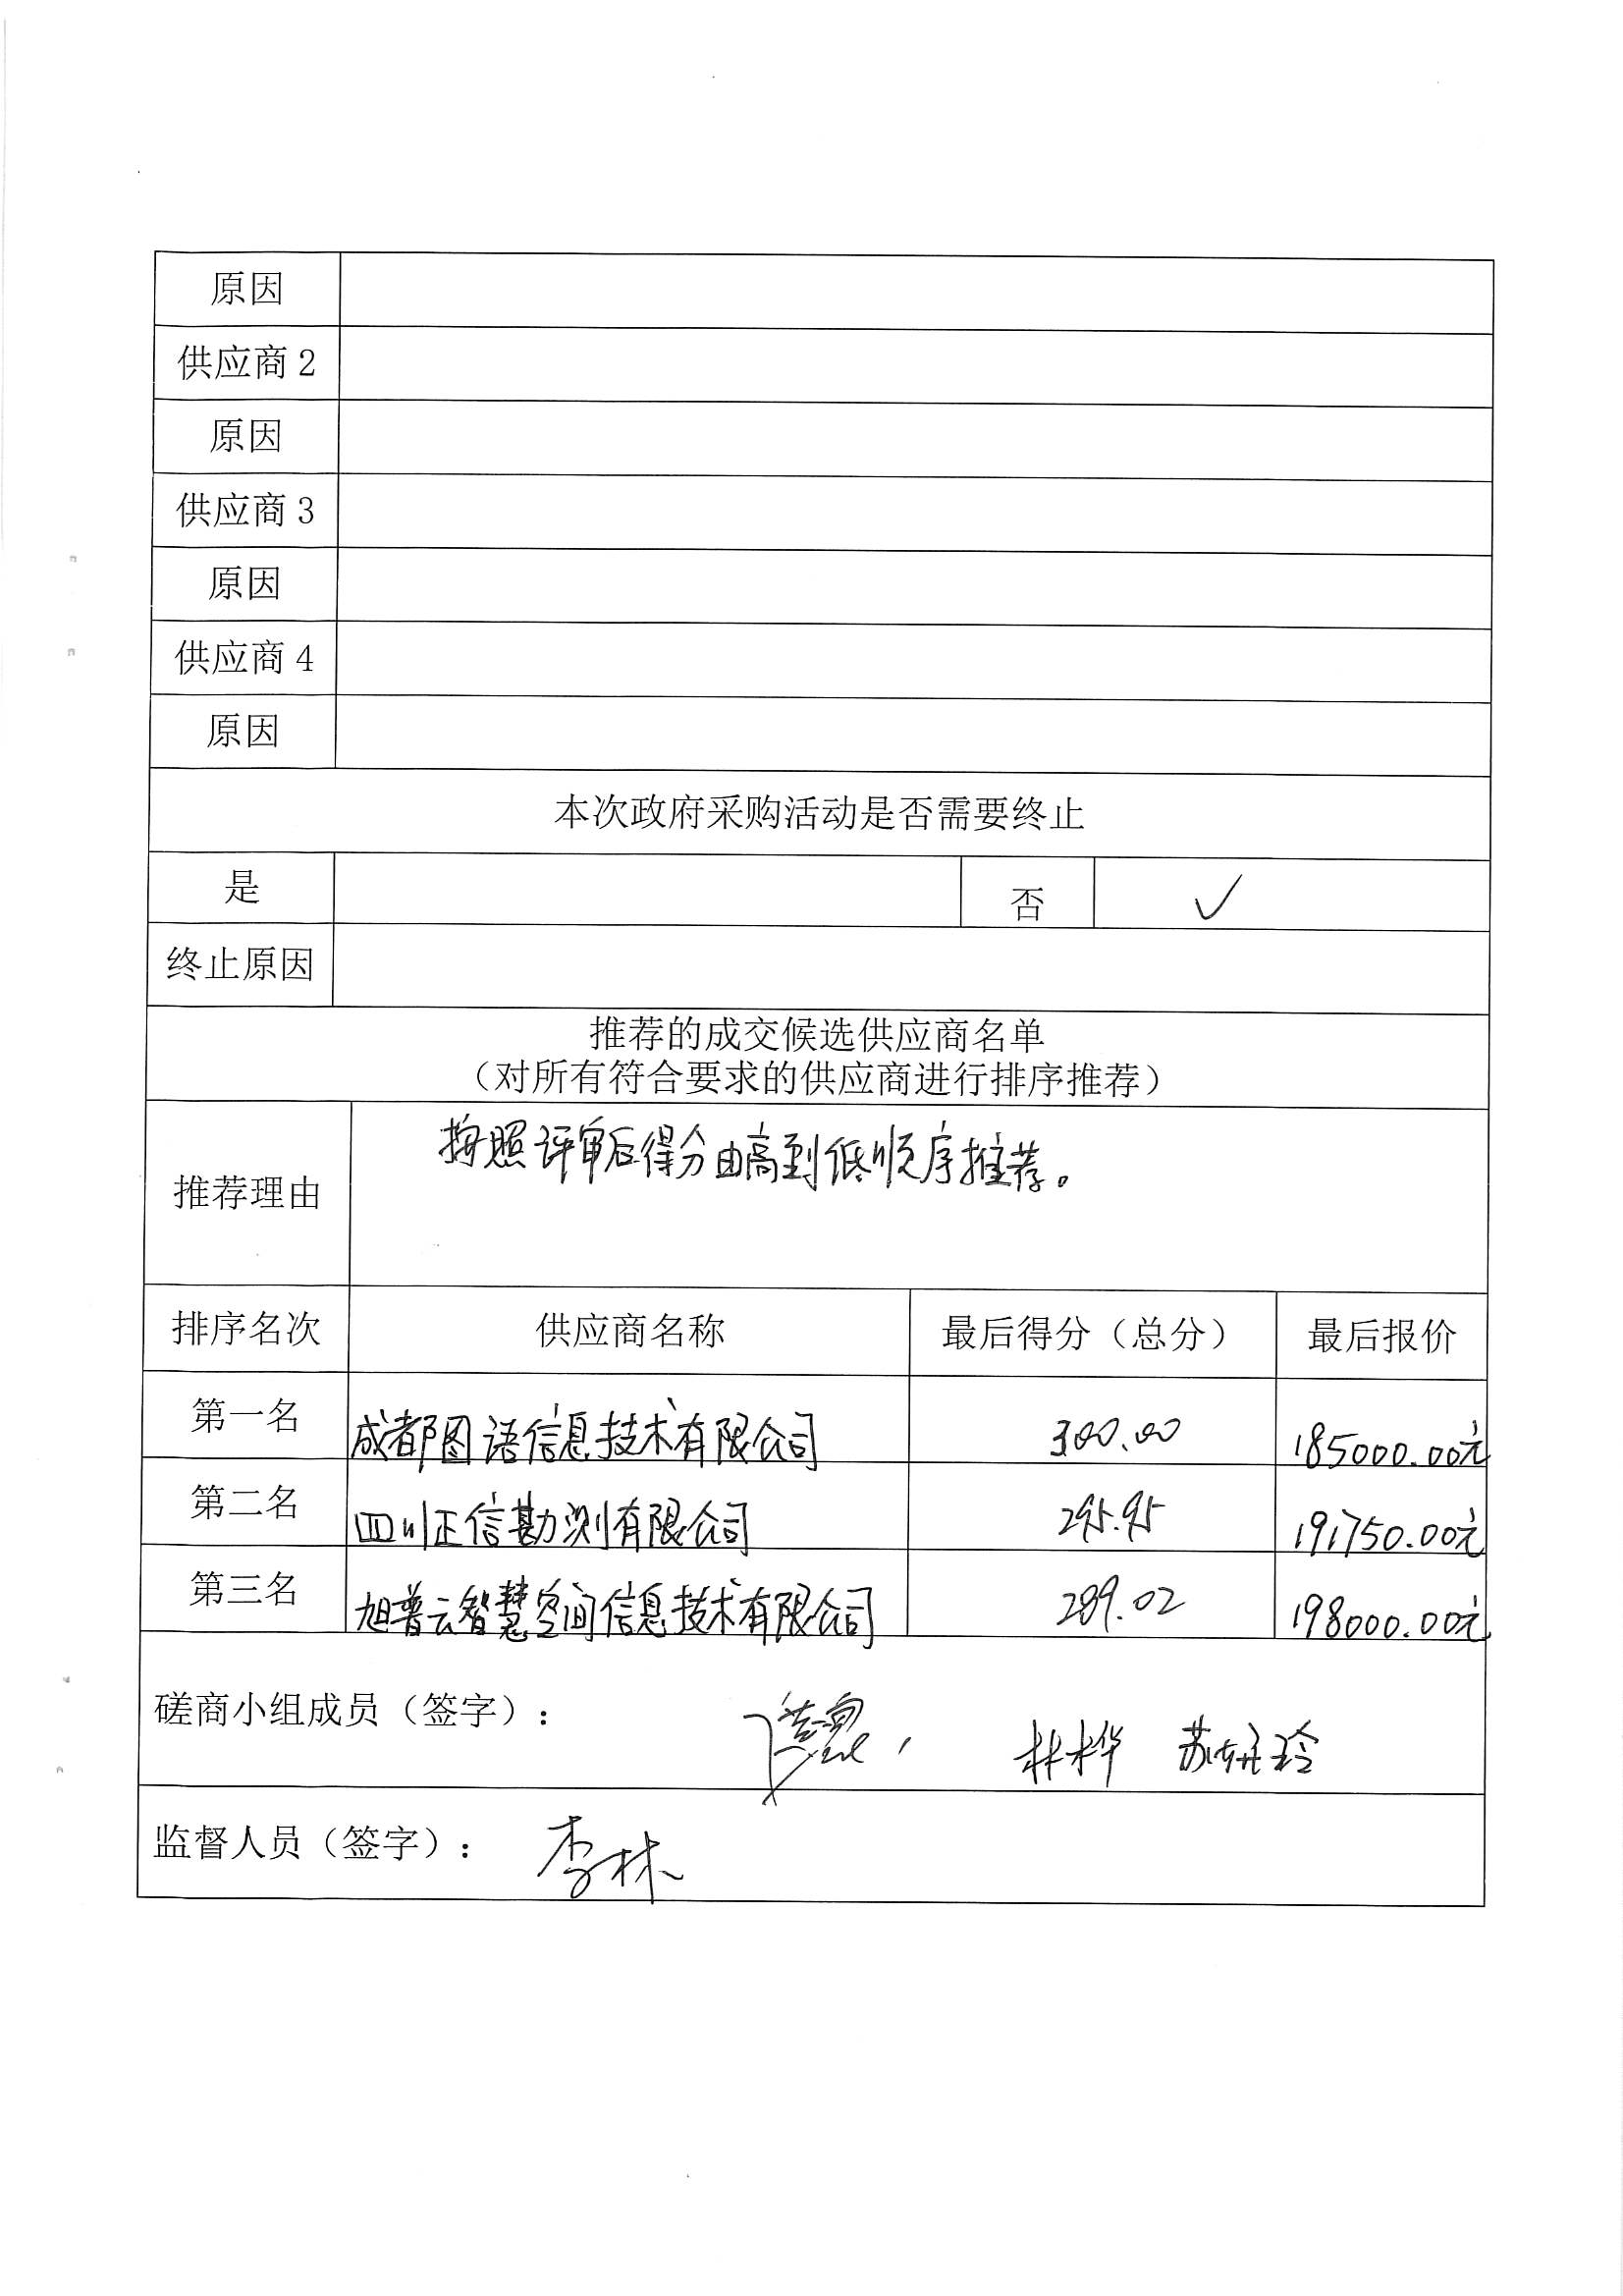 原因
供应商2
原因
供应商3
原因
供应商4
原因
本次政府采购活动是否需要终止
是 否 ✓
终止原因
推荐的成交候选供应商名单
（对所有符合要求的供应商进行排序推荐）
推荐理由 按照评审后得分由高到低顺序推荐。
排序名次 供应商名称 最后得分（总分） 最后报价
第一名 成都图语信息技术有限公司 300.00 185000.00元
第二名 四川正信勘测有限公司 295.95 191750.00元
第三名 旭普云智慧空间信息技术有限公司 289.02 198000.00元
磋商小组成员（签字）： 林桦 苏妍玲
监督人员（签字）： 李林